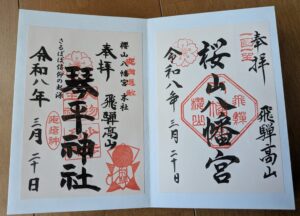 奉拝
飛騨高山
桜山八幡宮
令和八年三月二十日
飛騨
櫻山
奉拝
櫻山八幡宮末社
飛騨高山
琴平神社
さるぼぼ信仰の起源
令和八年
三月二十日